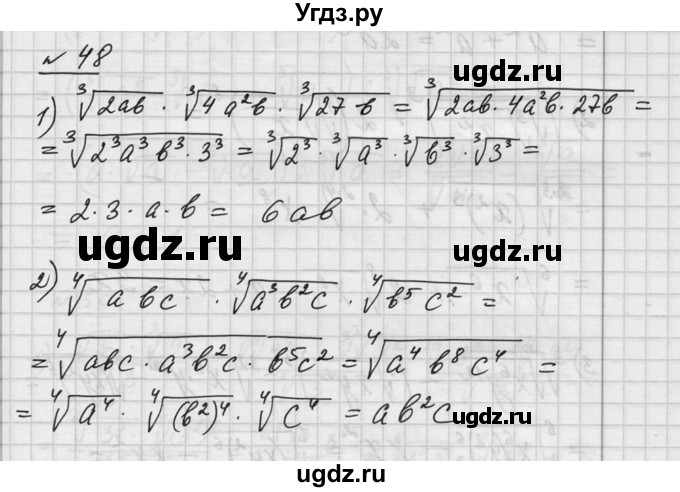 Угдз.ру
№ 48
ugdz.ru ugdz.ru
1) ∛(2ab) · ∛(4a²b) · ∛(27b) = ∛(2ab · 4a²b · 27b) =
= ∛(2³a³b³ · 3³) = ∛(2³) · ∛(a³) · ∛(b³) · ∛(3³) =
= 2 · 3 · a · b = 6ab
ugdz.ru ugdz.ru
2) ∜(abc) · ∜(a³b²c) · ∜(b⁵c²) =
= ∜(abc · a³b²c · b⁵c²) = ∜(a⁴b⁸c⁴) =
= ∜(a⁴) · ∜((b²)⁴) · ∜(c⁴) = ab²c
ugdz.ru
ugdz.ru